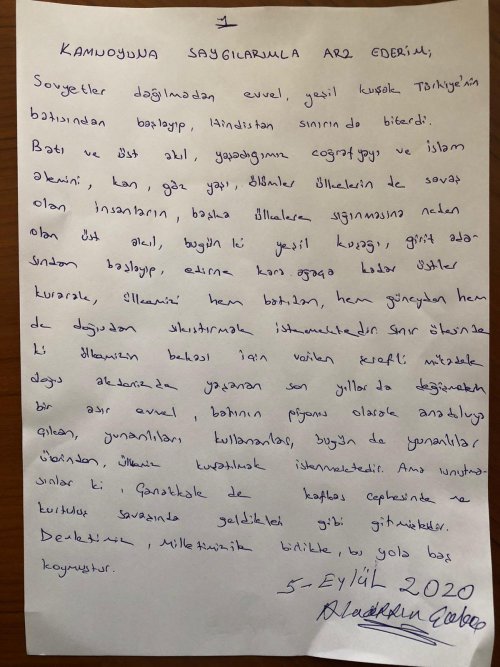 1
KAMUOYUNA SAYGILARIMLA ARZ EDERİM;
Sovyetler dağılmadan evvel, yeşil kuşak Türkiye'nin
batısından başlayıp, Hindistan sınırında biterdi.
Batı ve üst akıl, yaşadığımız coğrafyayı ve islam
alemini, kan, göz yaşı, ölümler ülkelerin de savaş
olan insanların, başka ülkelere sığınmasına neden
olan üst akıl, bugün ki yeşil kuşağı, girit ada-
sından başlayıp, edirne kara ağaça kadar üstler
kurarak, ülkemizi hem batıdan, hem güneyden hem
de doğudan sıkıştırmak istenmektedir. Sınır ötesinde
ki ülkemizin bekası için verilen şerefli mücadele
doğu akdenizde yaşanan son yıllar da değişmeden
bir asır evvel, batının piyonu olarak anadoluya
çıkan, yunanlıları kullananlar, bugün de yunanlılar
üzerinden, ülkemiz kuşatılmak istenmektedir. Ama unutma-
sınlar ki, Çanakkale de kafkas cephesinde ve
kurtuluş savaşında geldikleri gibi gitmişlerdir.
Devletimiz, Milletimizle birlikte, bu yola baş
koymuştur.
5-EYLÜL 2020